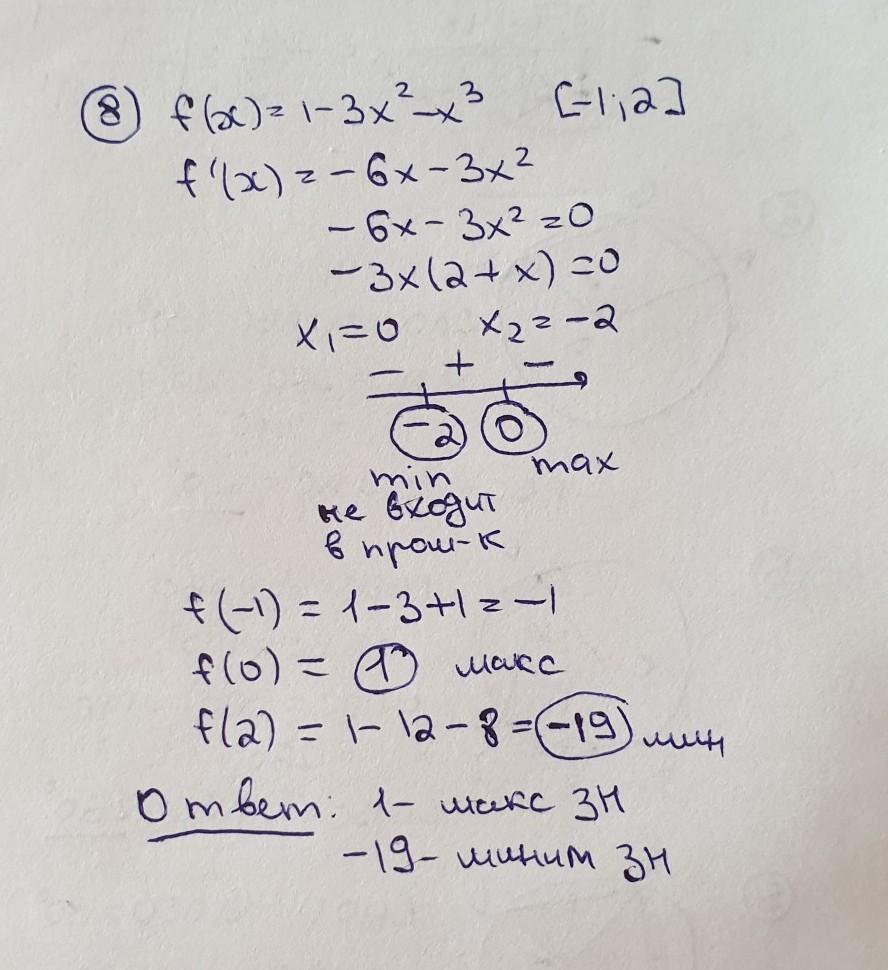 ⑧ f(x)=1-3x²-x³ [-1;2]
f'(x)=-6x-3x²
-6x-3x²=0
-3x(2+x)=0
x₁=0 x₂=-2
- + -
-2 0
min max
не входит
в пром-к
f(-1)=1-3+1=-1
f(0)=1 макс
f(2)=1-12-8=-19 мин
Ответ: 1- макс зн
-19- миним зн